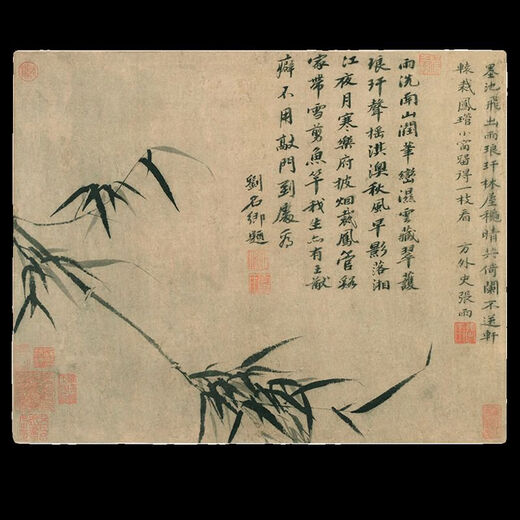 墨池飛出琅玕林屋穐晴共倚闌不逐軒
轅裁鳳琯小窗留得一枝看 方外史張雨
雨洗南山潤巒濕雲藏翠護
琅玕聲搖淇澳秋風早影落湘
江夜月寒樂府披烟裁鳳管谿
家帶雪剪魚竿我生亦有王猷
癖不用敲門到處看
劉卿題